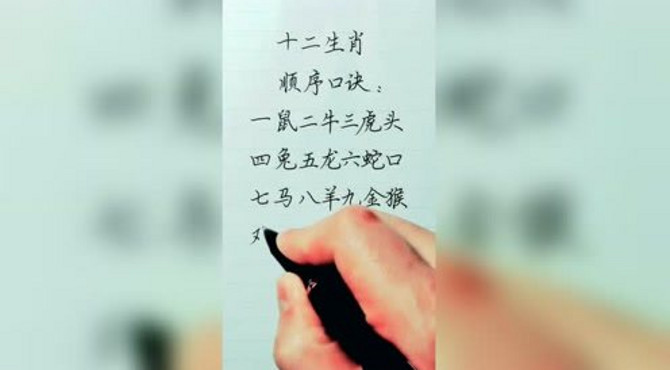 十二生肖
顺序口诀：
一鼠二牛三虎头
四兔五龙六蛇口
七马八羊九金猴